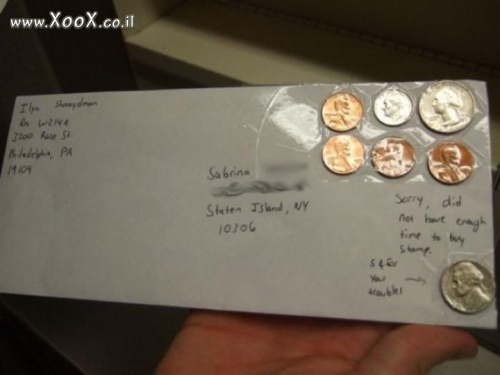 www.XooX.co.il
Ilya
Rm W214A
3200 Race St.
Philadelphia, PA
19104
Sabrina
Staten Island, NY
10306
Sorry, did
not have enough
time to buy
stamp.
5¢ for
your
trouble!